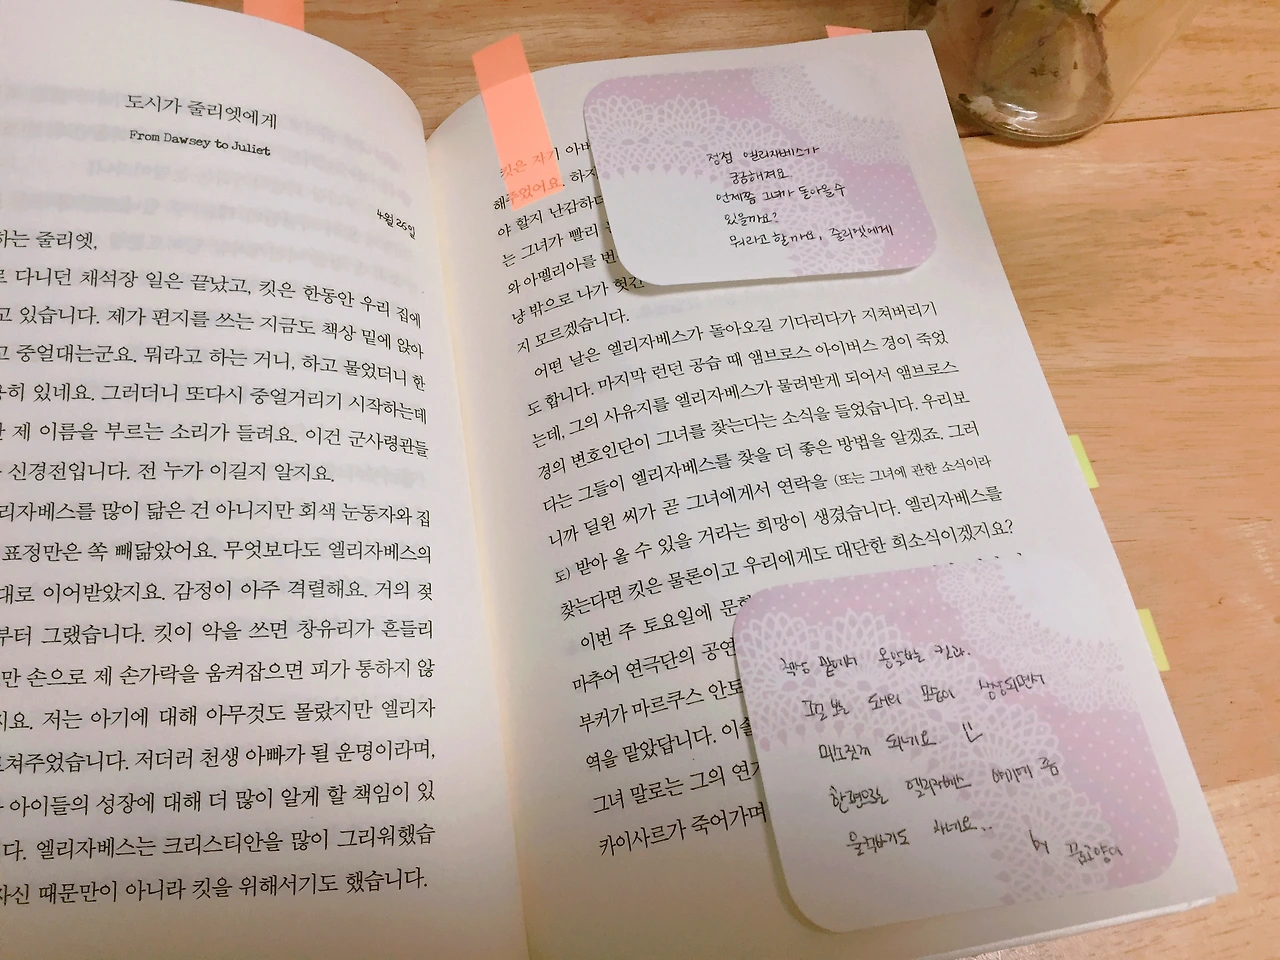 도시가 줄리엣에게
From Dawsey to Juliet
4월 26일
하는 줄리엣,
로 다니던 채석장 일은 끝났고, 킷은 한동안 우리 집에
고 있습니다. 제가 편지를 쓰는 지금도 책상 밑에 앉아
고 중얼대는군요. 뭐라고 하는 거니, 하고 물었더니 한
용히 있네요. 그러더니 또다시 중얼거리기 시작하는데
제 이름을 부르는 소리가 들려요. 이건 군사령관들
신경전입니다. 전 누가 이길지 알지요.
리자베스를 많이 닮은 건 아니지만 회색 눈동자와 집
표정만은 쏙 빼닮았어요. 무엇보다도 엘리자베스의
대로 이어받았지요. 감정이 아주 격렬해요. 거의 젖
부터 그랬습니다. 킷이 악을 쓰면 창유리가 흔들리
만 손으로 제 손가락을 움켜잡으면 피가 통하지 않
지요. 저는 아기에 대해 아무것도 몰랐지만 엘리자
르쳐주었습니다. 저더러 천생 아빠가 될 운명이라며,
아이들의 성장에 대해 더 많이 알게 할 책임이 있
다. 엘리자베스는 크리스티안을 많이 그리워했습
자신 때문만이 아니라 킷을 위해서기도 했습니다.
킷은 자기 아버
해주었어요. 하지
야 할지 난감하다
는 그녀가 빨리
와 아멜리아를 번
냥 밖으로 나가 헛간
지 모르겠습니다.
어떤 날은 엘리자베스가 돌아오길 기다리다가 지쳐버리기
도 합니다. 마지막 런던 공습 때 앰브로스 아이버스 경이 죽었
는데, 그의 사유지를 엘리자베스가 물려받게 되어서 앰브로스
경의 변호인단이 그녀를 찾는다는 소식을 들었습니다. 우리보
다는 그들이 엘리자베스를 찾을 더 좋은 방법을 알겠죠. 그러
니까 딜윈 씨가 곧 그녀에게서 연락을 (또는 그녀에 관한 소식이라
도) 받아 올 수 있을 거라는 희망이 생겼습니다. 엘리자베스를
찾는다면 킷은 물론이고 우리에게도 대단한 희소식이겠지요?
이번 주 토요일에 문학
마추어 연극단의 공연
부커가 마르쿠스 안토
역을 맡았답니다. 이솔
그녀 말로는 그의 연기
카이사르가 죽어가며
점점 엘리자베스가
궁금해져요
언제쯤 그녀가 돌아올 수
있을까요?
뭐라고 할까요, 줄리엣에게
책상 밑에서 옹알대는 킷과.
그걸 보는 도시의 모습이 상상되면서
미소짓게 되네요 ㅣㅣ
한편으로 엘리자베스 얘기에 좀
울컥하기도 하네요..
by 꿈고양이